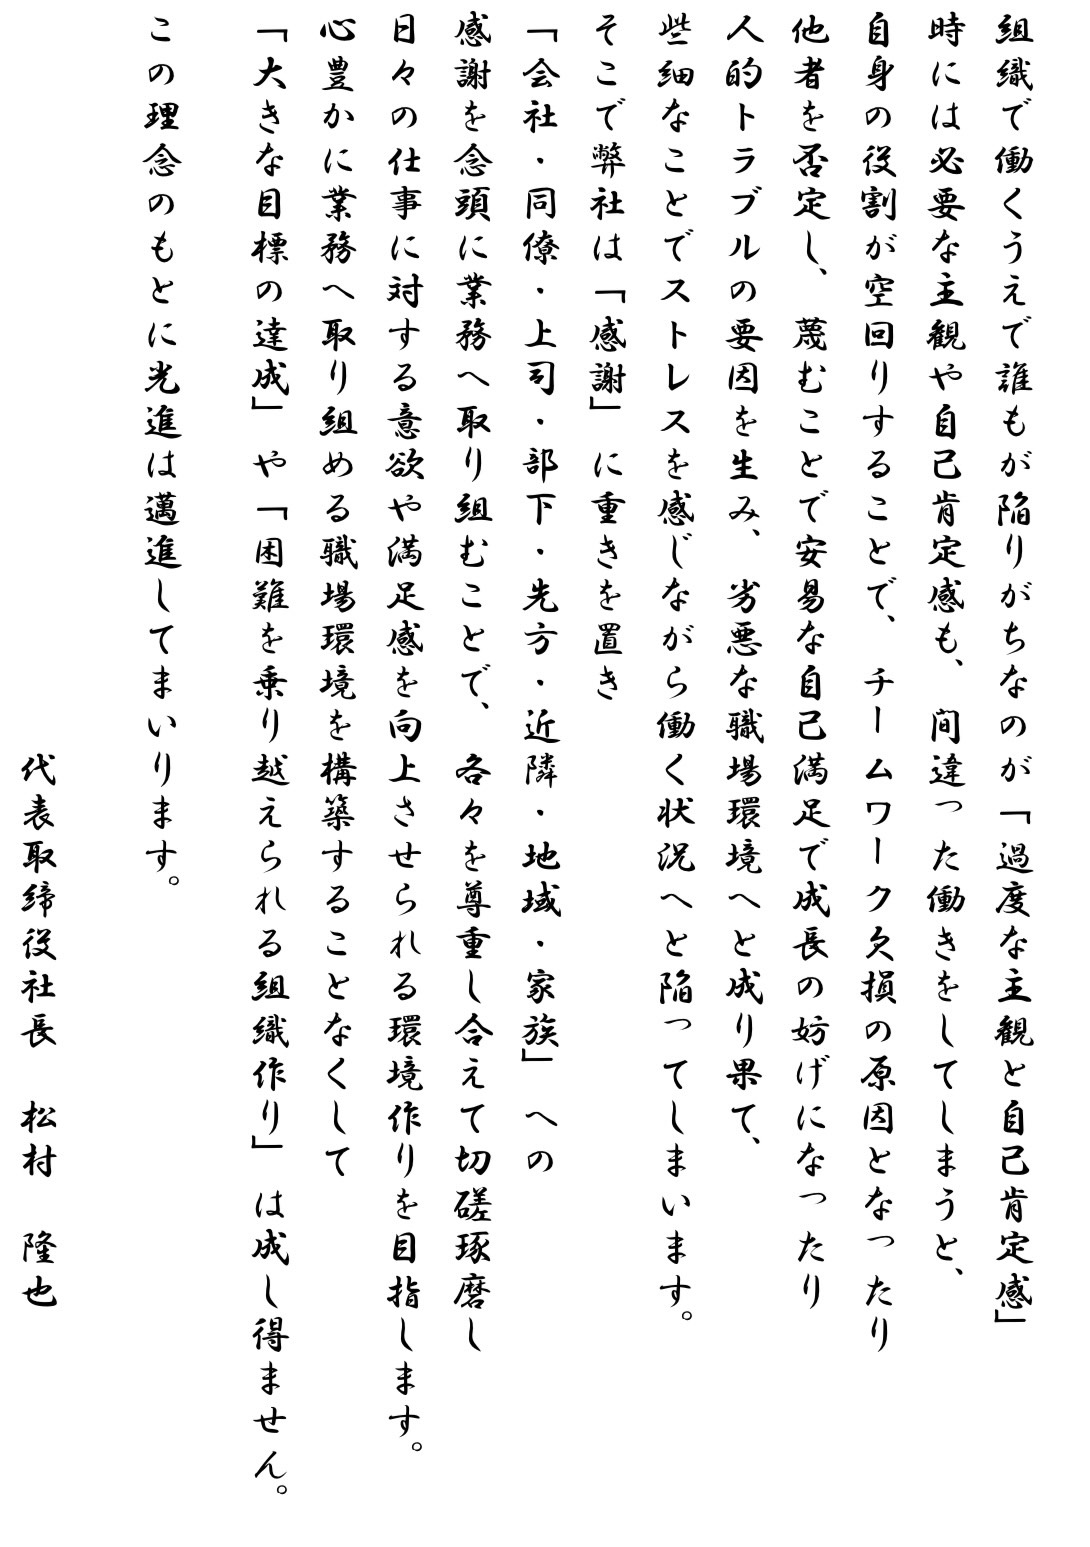 組織で働くうえで誰もが陥りがちなのが「過度な主観と自己肯定感」
時には必要な主観や自己肯定感も、間違った働きをしてしまうと、
自身の役割が空回りすることで、チームワーク欠損の原因となったり
他者を否定し、蔑むことで安易な自己満足で成長の妨げになったり
人的トラブルの要因を生み、劣悪な職場環境へと成り果て、
些細なことでストレスを感じながら働く状況へと陥ってしまいます。
そこで弊社は「感謝」に重きを置き
「会社・同僚・上司・部下・先方・近隣・地域・家族」への
感謝を念頭に業務へ取り組むことで、各々を尊重し合えて切磋琢磨し
日々の仕事に対する意欲や満足感を向上させられる環境作りを目指します。
心豊かに業務へ取り組める職場環境を構築することなくして
「大きな目標の達成」や「困難を乗り越えられる組織作り」は成し得ません。
この理念のもとに光進は邁進してまいります。
代表取締役社長　松村　隆也